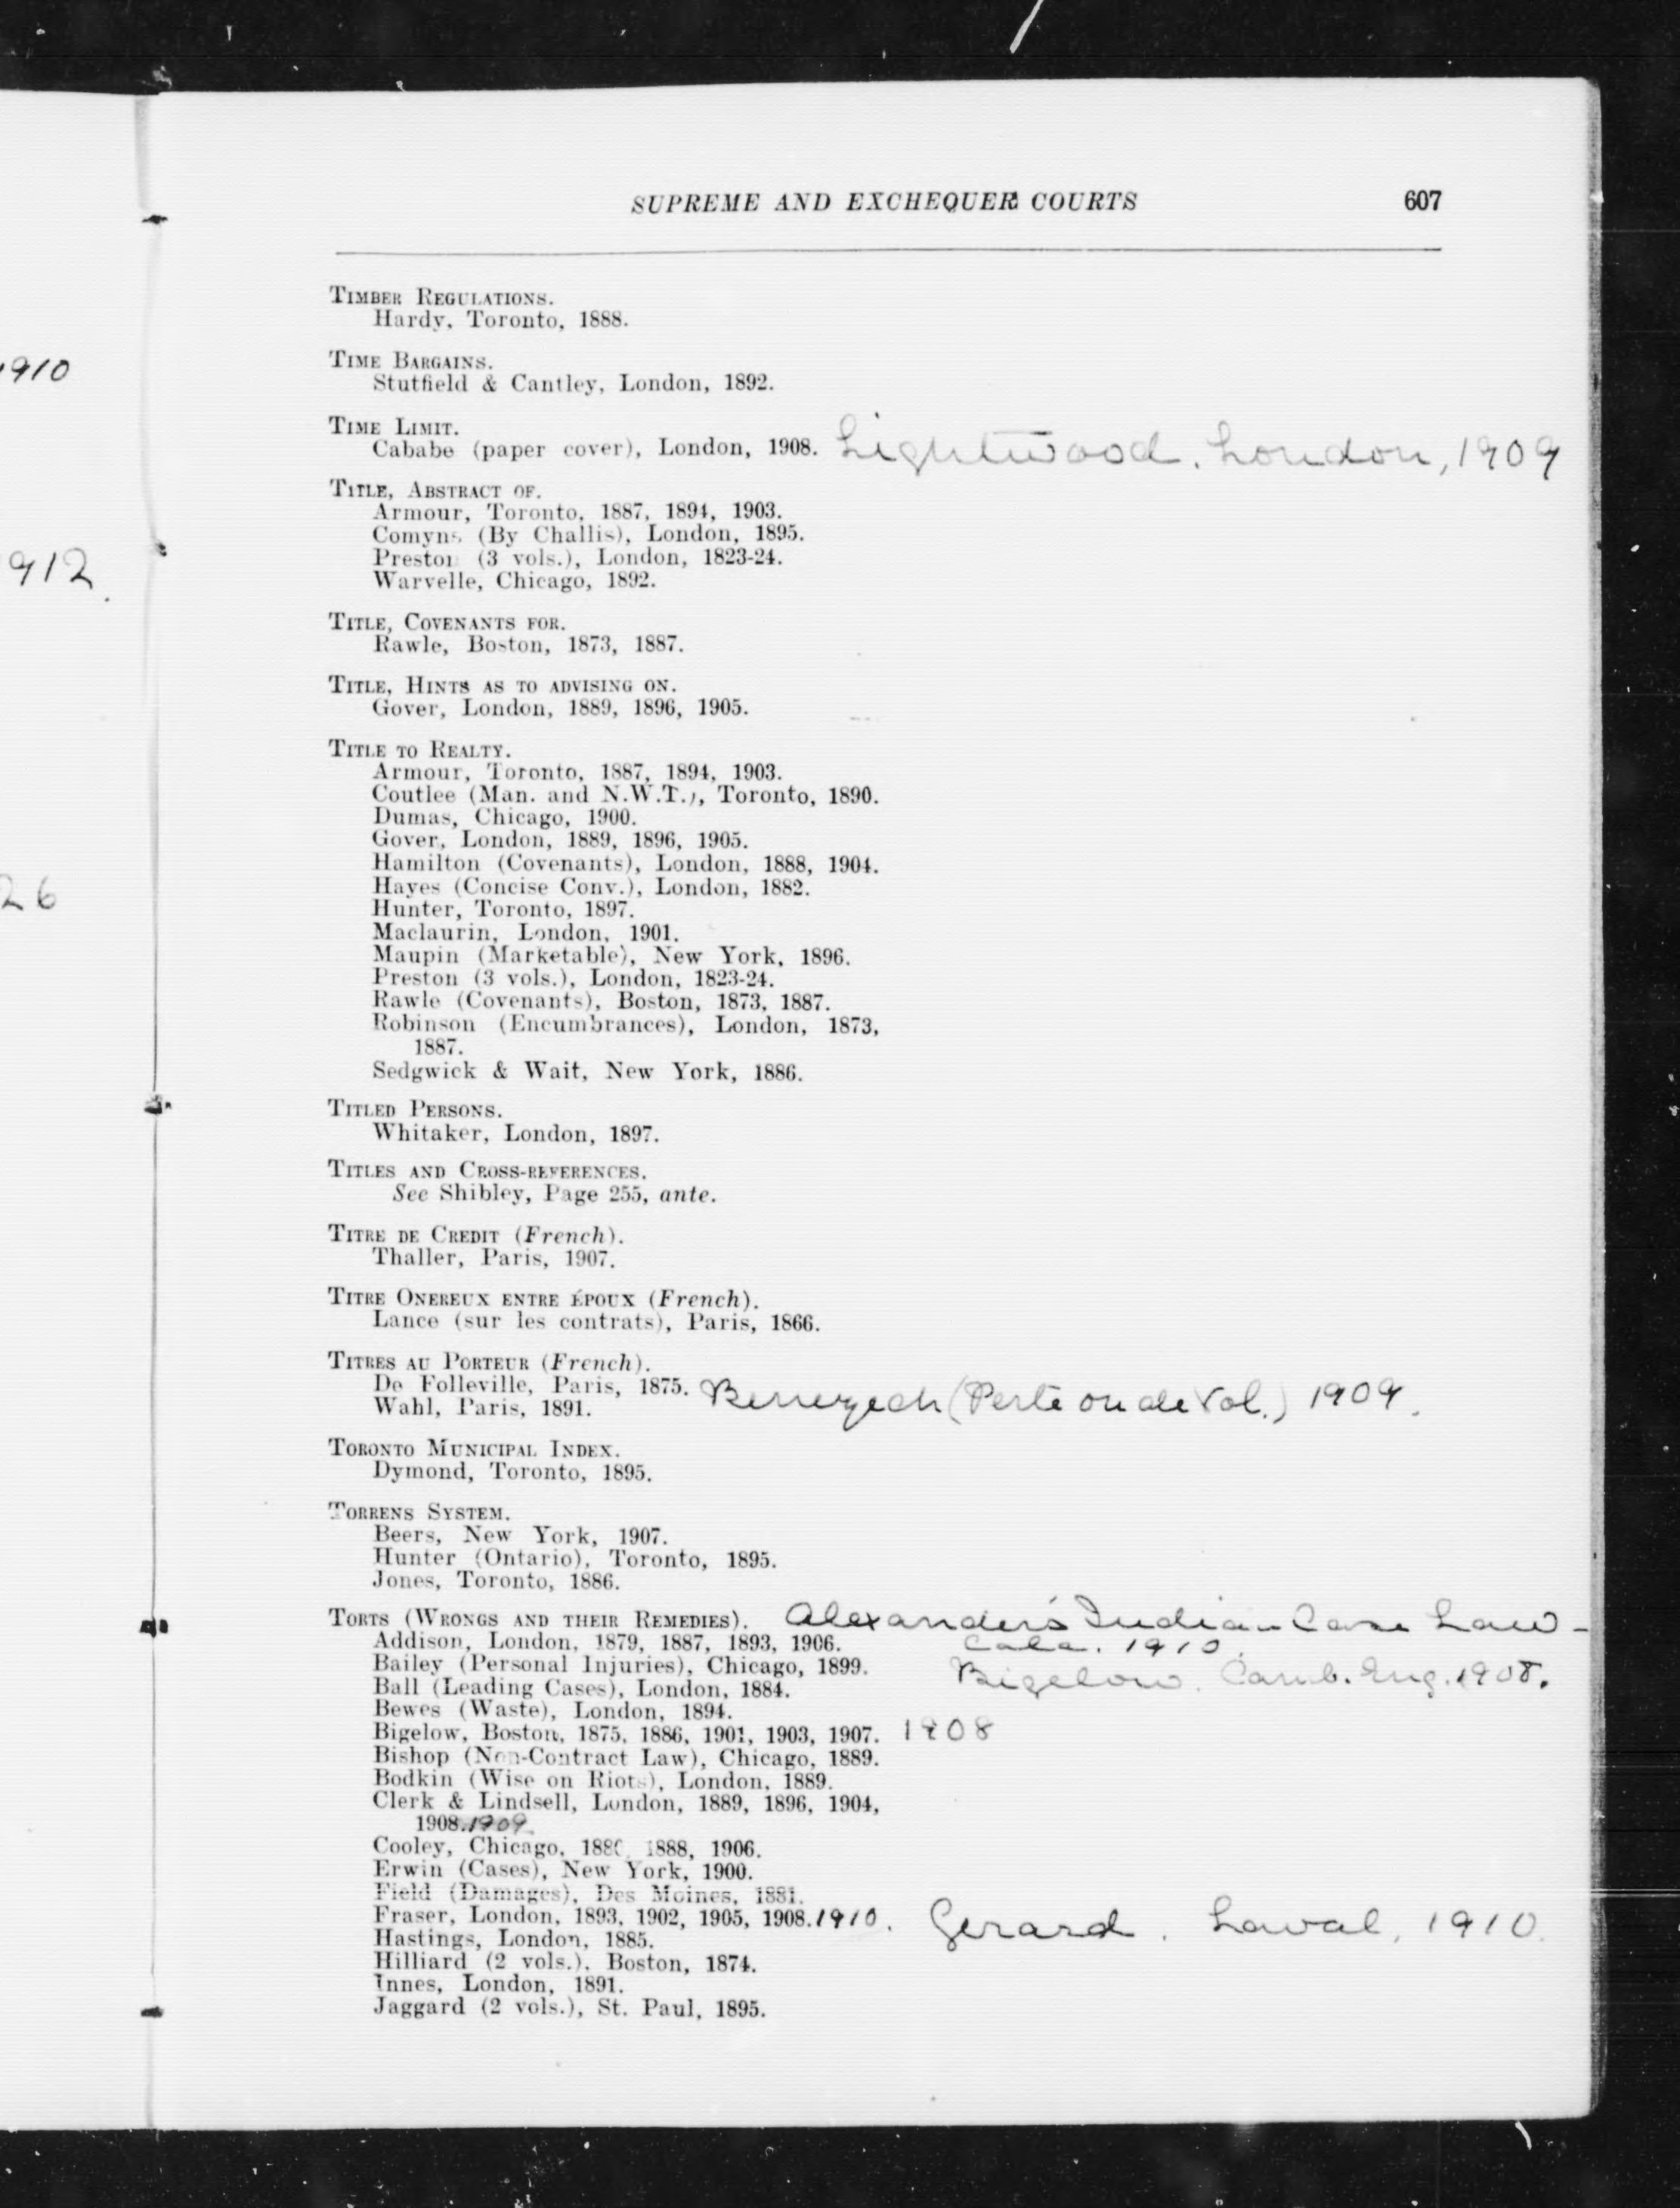 SUPREME AND EXCHEQUER COURTS 607
TIMBER REGULATIONS.
Hardy, Toronto, 1888.
910
TIME BARGAINS.
Stutfield & Cantley, London, 1892.
TIME LIMIT.
Cababe (paper cover), London, 1908. Lightwood. London, 1909
TITLE, ABSTRACT OF.
Armour, Toronto, 1887, 1894, 1903.
Comyns (By Challis), London, 1895.
Preston (3 vols.), London, 1823-24.
912.
Warvelle, Chicago, 1892.
TITLE, COVENANTS FOR.
Rawle, Boston, 1873, 1887.
TITLE, HINTS AS TO ADVISING ON.
Gover, London, 1889, 1896, 1905.
TITLE TO REALTY.
Armour, Toronto, 1887, 1894, 1903.
Coutlee (Man. and N.W.T.), Toronto, 1890.
Dumas, Chicago, 1900.
Gover, London, 1889, 1896, 1905.
Hamilton (Covenants), London, 1888, 1904.
Hayes (Concise Conv.), London, 1882.
26
Hunter, Toronto, 1897.
Maclaurin, London, 1901.
Maupin (Marketable), New York, 1896.
Preston (3 vols.), London, 1823-24.
Rawle (Covenants), Boston, 1873, 1887.
Robinson (Encumbrances), London, 1873,
1887.
Sedgwick & Wait, New York, 1886.
TITLED PERSONS.
Whitaker, London, 1897.
TITLES AND CROSS-REFERENCES.
See Shibley, Page 255, ante.
TITRE DE CREDIT (French).
Thaller, Paris, 1907.
TITRE ONEREUX ENTRE ÉPOUX (French).
Lance (sur les contrats), Paris, 1866.
TITRES AU PORTEUR (French).
De Folleville, Paris, 1875. (Perte ou de Vol.) 1909.
Wahl, Paris, 1891.
TORONTO MUNICIPAL INDEX.
Dymond, Toronto, 1895.
TORRENS SYSTEM.
Beers, New York, 1907.
Hunter (Ontario), Toronto, 1895.
Jones, Toronto, 1886.
TORTS (WRONGS AND THEIR REMEDIES). Alexander's Indian Case Law -
Addison, London, 1879, 1887, 1893, 1906. Calc. 1910.
Bailey (Personal Injuries), Chicago, 1899. Bigelow. Camb. Eng. 1908.
Ball (Leading Cases), London, 1884.
Bewes (Waste), London, 1894.
Bigelow, Boston, 1875, 1886, 1901, 1903, 1907. 1908
Bishop (Non-Contract Law), Chicago, 1889.
Bodkin (Wise on Riots), London, 1889.
Clerk & Lindsell, London, 1889, 1896, 1904,
1908. 1909.
Cooley, Chicago, 1888, 1906.
Erwin (Cases), New York, 1900.
Field (Damages), Des Moines, 1881.
Fraser, London, 1893, 1902, 1905, 1908. 1910. Gerard. Laval, 1910.
Hastings, London, 1885.
Hilliard (2 vols.), Boston, 1874.
Innes, London, 1891.
Jaggard (2 vols.), St. Paul, 1895.